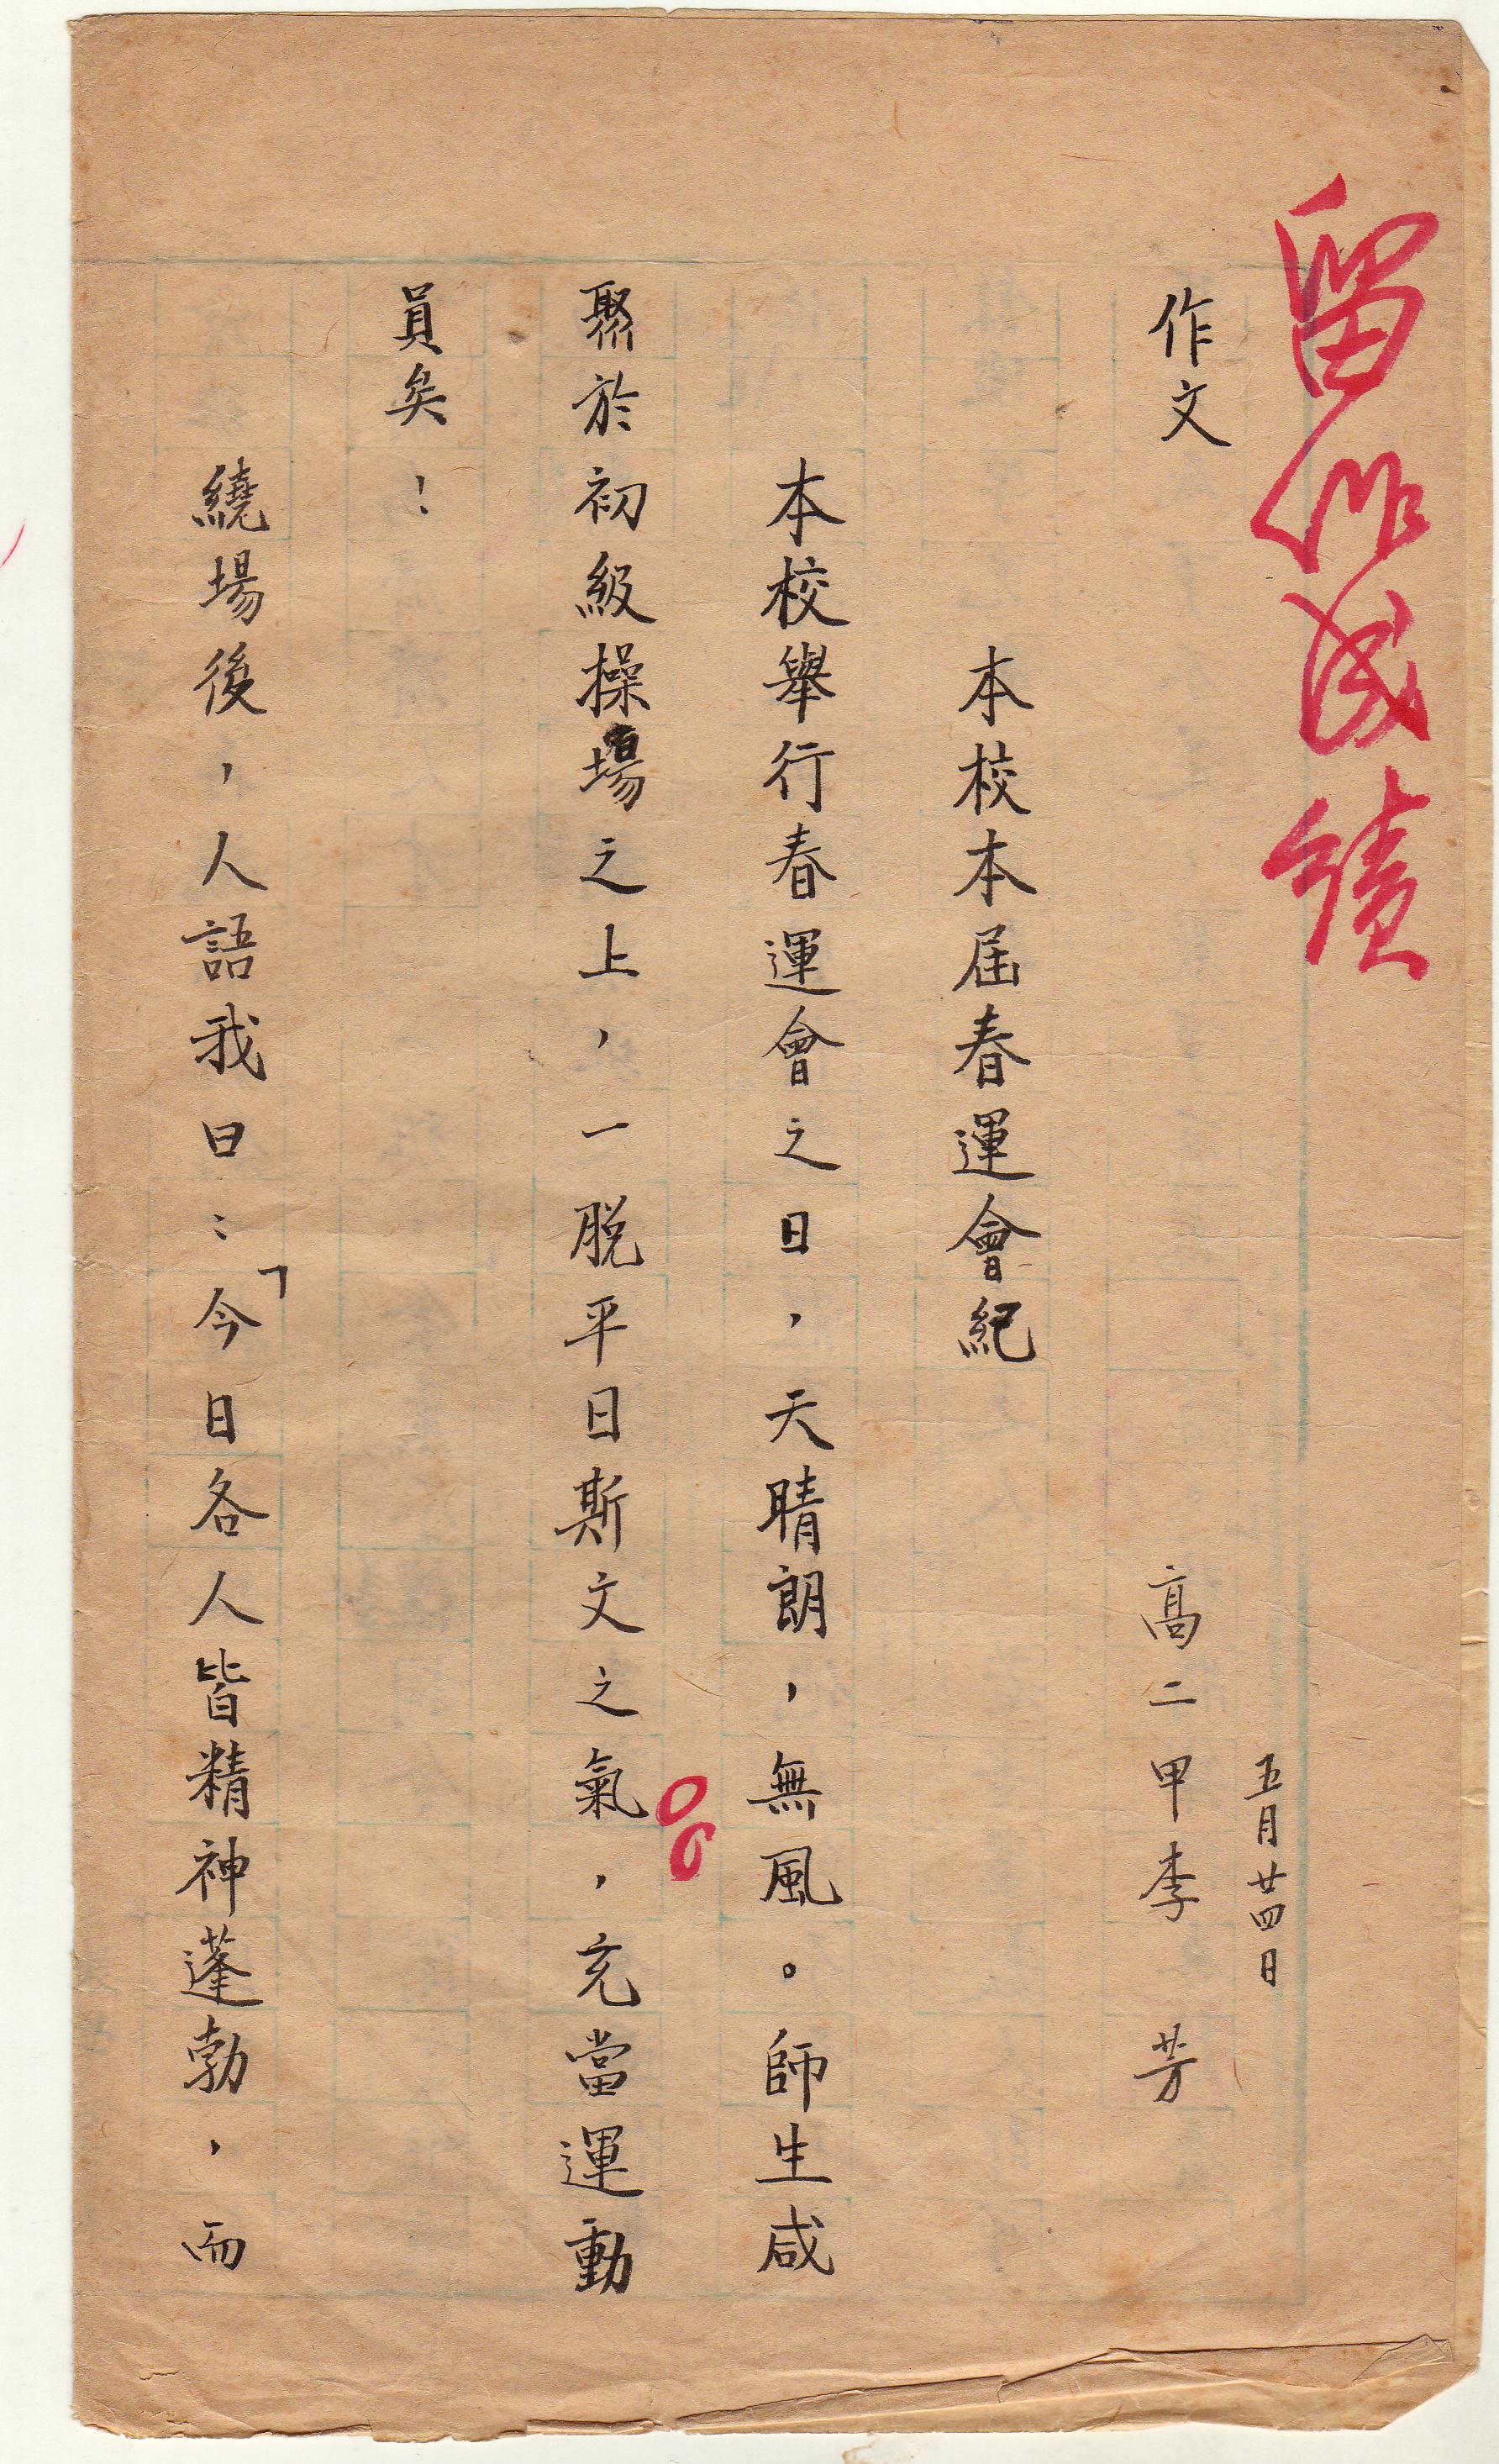 留作成績
五月廿四日
作文 高二甲李 芳
本校本屆春運會紀
本校舉行春運會之日，天晴朗，無風。師生咸
聚於初級操場之上，一脫平日斯文之氣，充當運動
員矣！
繞場後，人語我曰：「今日各人皆精神蓬勃，而